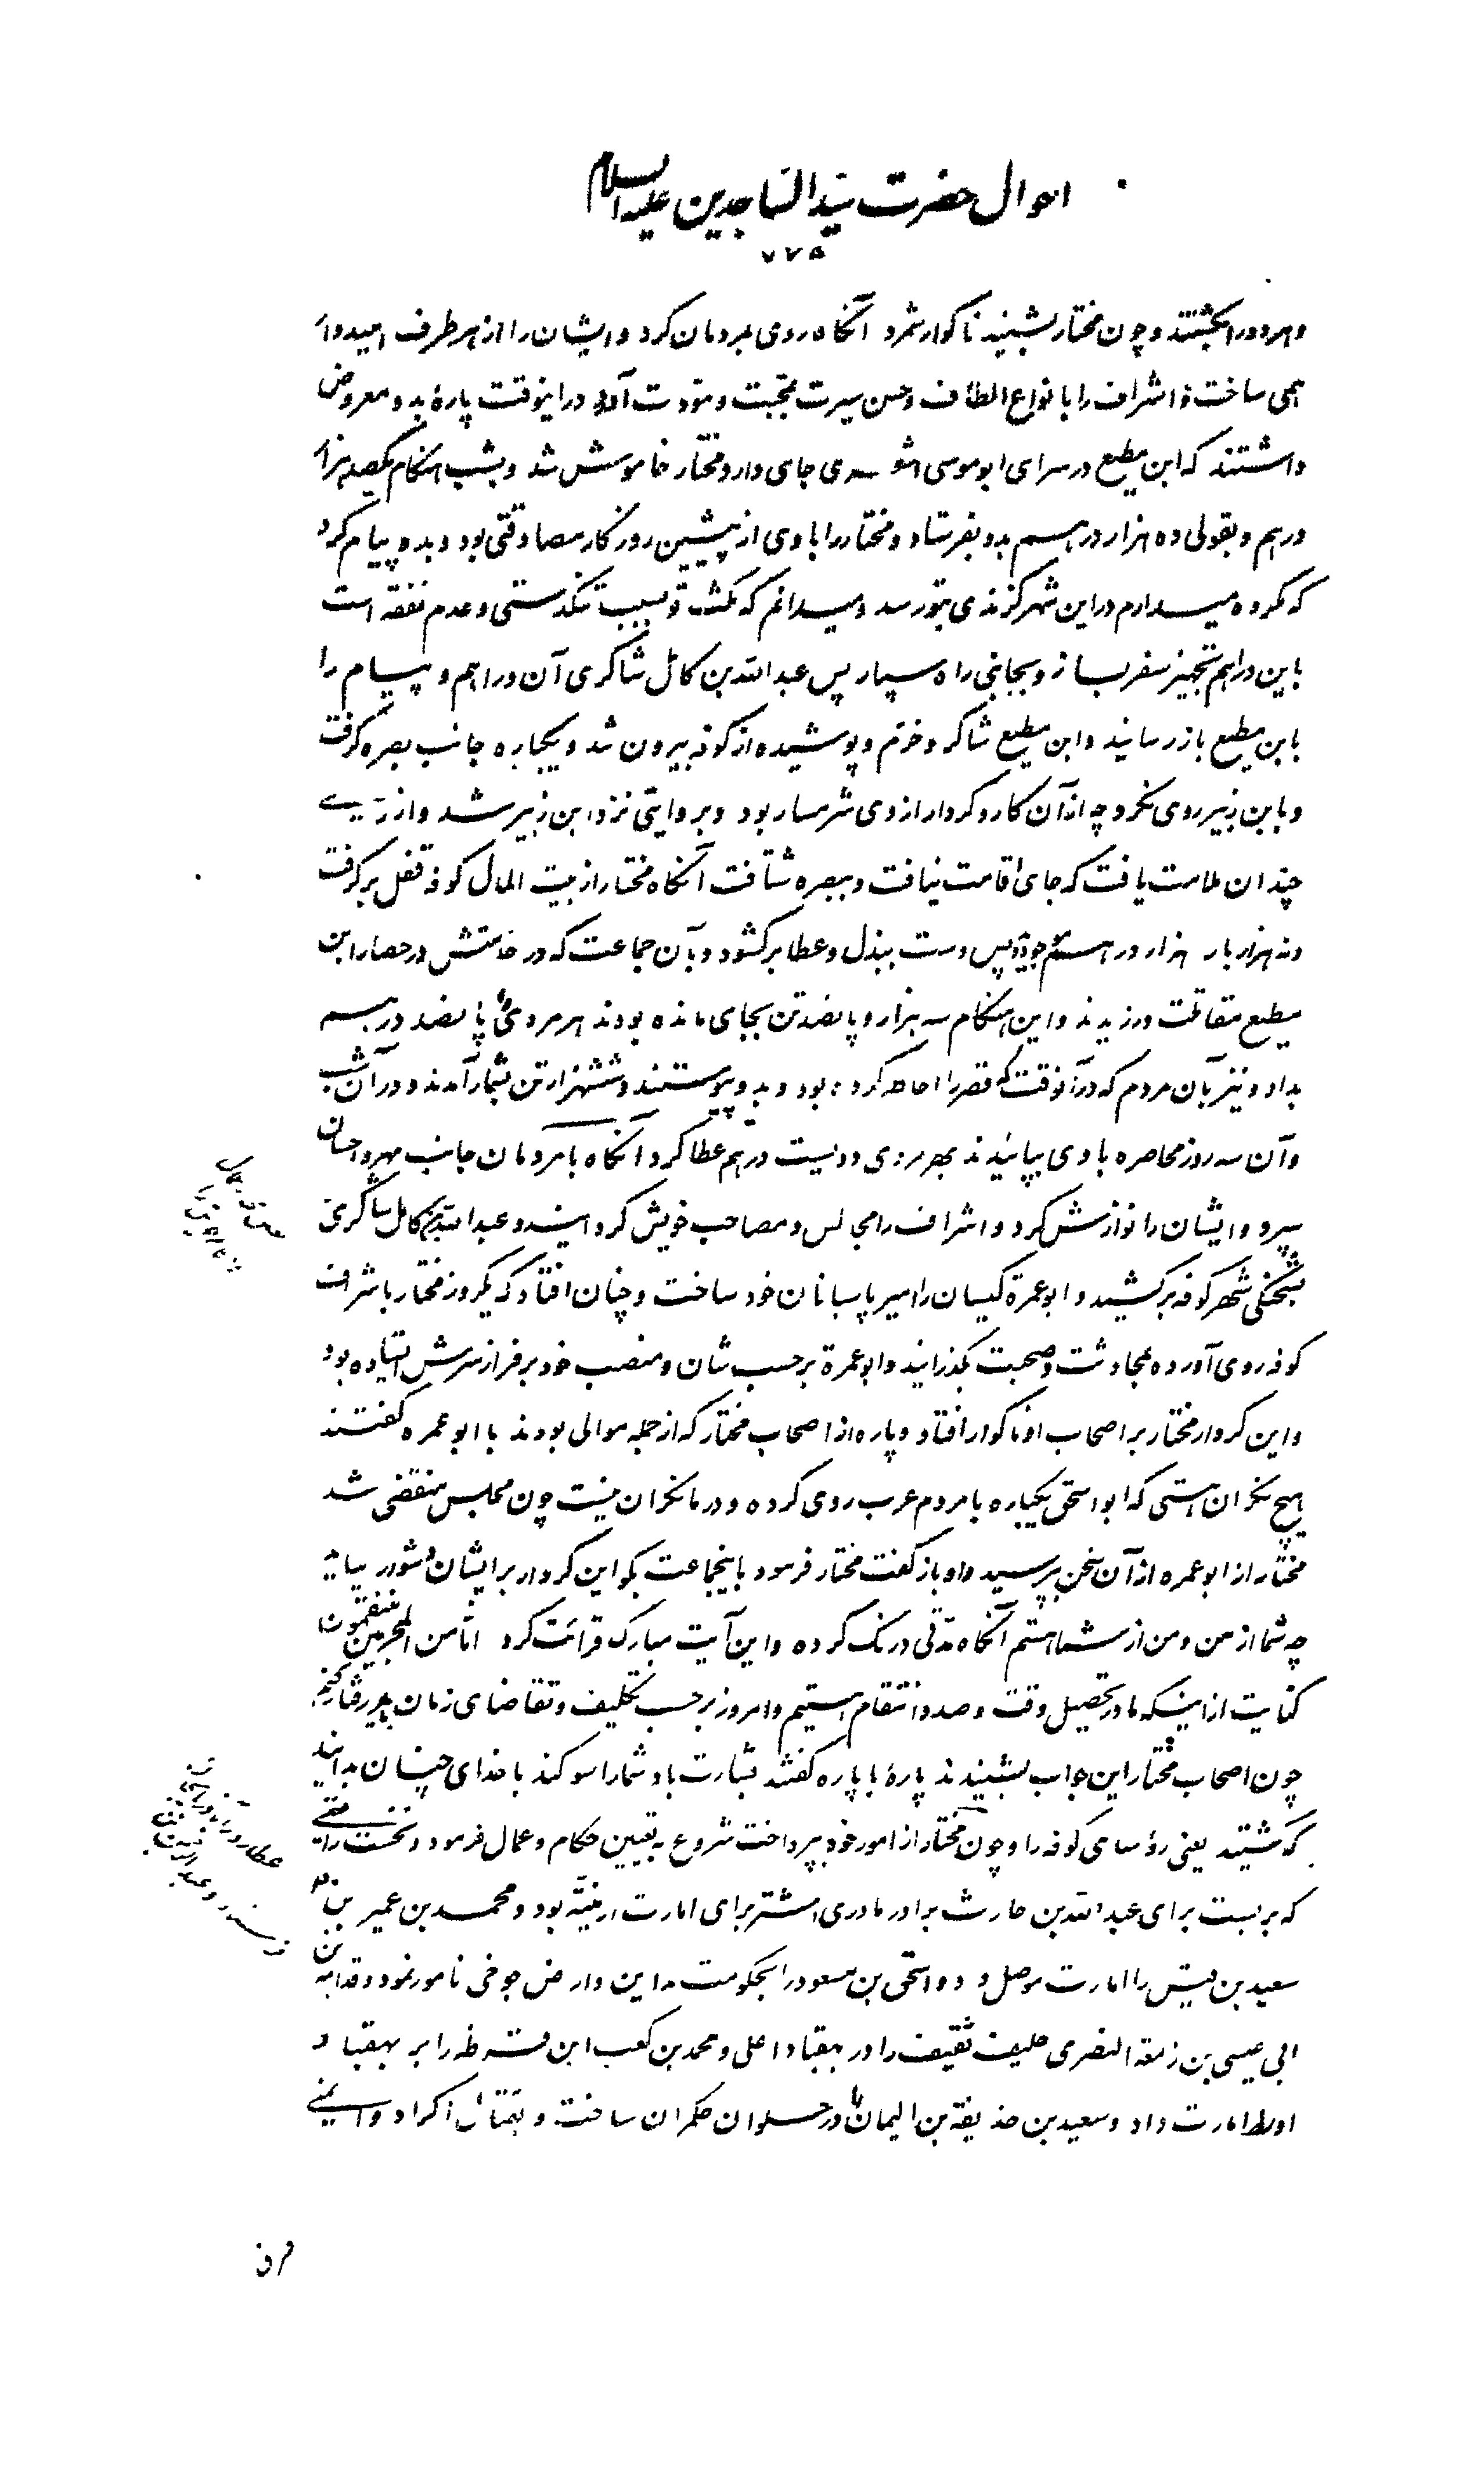 احوال حضرت سید الساجدین علیه السلام
۷۷۵
و هر دو را بکشتند و چون مختار بشنید ناگوار شمرد آنگاه روی بمردمان کرد و ایشان را از هر طرف امیدوار
همی ساخت و اشراف را بانواع الطاف و حسن سیرت بمحبت و مودت آورد در اینوقت پارهٔ بدو معروض
داشتند که ابن مطیع در سرای ابوموسی اشعری جای دارد مختار خاموش شد و بشب هنگام یکصد هزار
درهم و بقولی ده هزار درهم بدو بفرستاد و مختار را با وی از پیشین روزگار مصادقتی بود و بدو پیام کرد
که مکروه میدارم در این شهر گزندی بتو رسد و میدانم که مکث تو بسبب تنگدستی و عدم نفقه است
باین دراهم تجهیز سفر بساز و بجانبی راه سپار پس عبدالله بن کامل شاکری آن دراهم و پیام را
بابن مطیع باز رسانید و ابن مطیع شاکر و خرم و پوشیده از کوفه بیرون شد و یکباره جانب بصره گرفت
و بابن زبیر روی نکرد چه از آن کار و کردار از وی شرمسار بود و بروایتی نزد ابن زبیر شد و از وی
چندان ملامت یافت که جای اقامت نیافت و ببصره شتافت آنگاه مختار از بیت المال کوفه قفل برگرفت
و نه هزار بار هزار درهم بیافت پس دست ببذل و عطا برگشود و بآن جماعت که در خدمتش در حصار ابن
مطیع مقاتلت ورزیدند و این هنگام سه هزار و پانصد تن بجای مانده بودند هر مردی را پانصد درهم
بداد و نیز بآن مردم که در آنوقت که قصر را احاطه کرده بود و بدو پیوستند و ششهزار تن بشمار آمدند و در آن شب
و آن سه روز محاصره با وی بپائیدند بهر مردی دویست درهم عطا کرد آنگاه با مردمان جانب مهر و احسان
سپرد و ایشان را نوازش کرد و اشراف را مجالس و مصاحب خویش گردانید و عبدالله بن کامل شاکری
بشحنگی شهر کوفه برکشید و ابو عمرة کیسان را امیر پاسبانان خود ساخت و چنان افتاد که یکروز مختار باشراف
کوفه روی آورده بمحادثت و صحبت بگذرانید و ابو عمرة برحسب شان و منصب خود بر فراز سرش ایستاده بود
و این کردار مختار بر اصحاب او ناگوار افتاد و پاره از اصحاب مختار که از جمله موالی بودند با ابو عمره گفتند
هیچ نگران هستی که ابو اسحق یکباره با مردم عرب روی کرده و در ما نگران نیست چون مجلس منقضی شد
مختار از ابو عمره از آن سخن بپرسید و او باز گفت مختار فرمود باینجماعت بگو این کردار بر ایشان دشوار نیاید
چه شما از من و من از شما هستم آنگاه مدتی درنگ کرده و این آیت مبارک قرائت کرد انا من المجرمین منتقمون
کنایت از اینکه ما در تحصیل وقت و صدد انتقام هستیم و امروز برحسب تکلیف و تقاضای زمان باید رفتار کنیم
چون اصحاب مختار این جواب بشنیدند پارهٔ با پاره گفتند بشارت باد شما را سوگند با خدای چنان بدانید
که کشتید یعنی رؤسای کوفه را و چون مختار از امور خود بپرداخت شروع به تعیین حکام و عمال فرمود و نخست رایتی
که بربست برای عبدالله بن حارث برادر مادری اشتر برای امارت ارمنیه بود و محمد بن عمیر بن
سعید بن قیس را امارت موصل و اسحق بن مسعود را بحکومت مداین و ارض جوخی نامور نمود و قدامه بن
ابی عیسی بن زمعة النصری حلیف ثقیف را در بهقباد اعلی و محمد بن کعب ابن قرظه را بر بهقباد
اوسط امارت داد و سعید بن حذیفة بن الیمان را در حلوان حکمران ساخت و بقتال اکراد و ایمنی